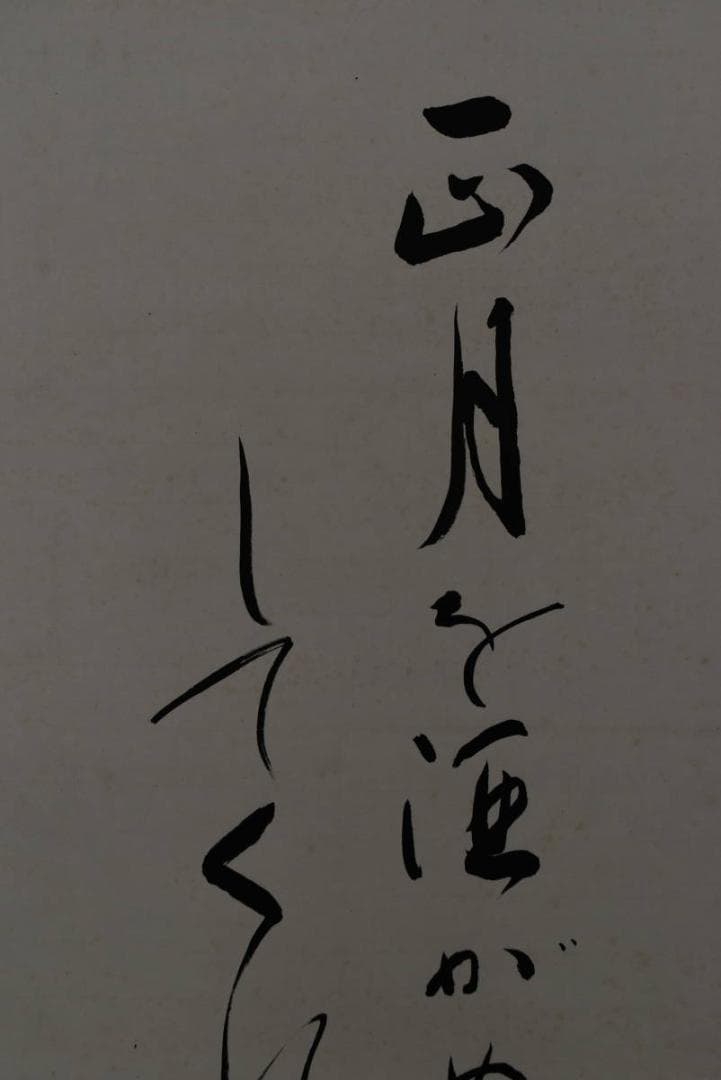 正月を酒が
してく